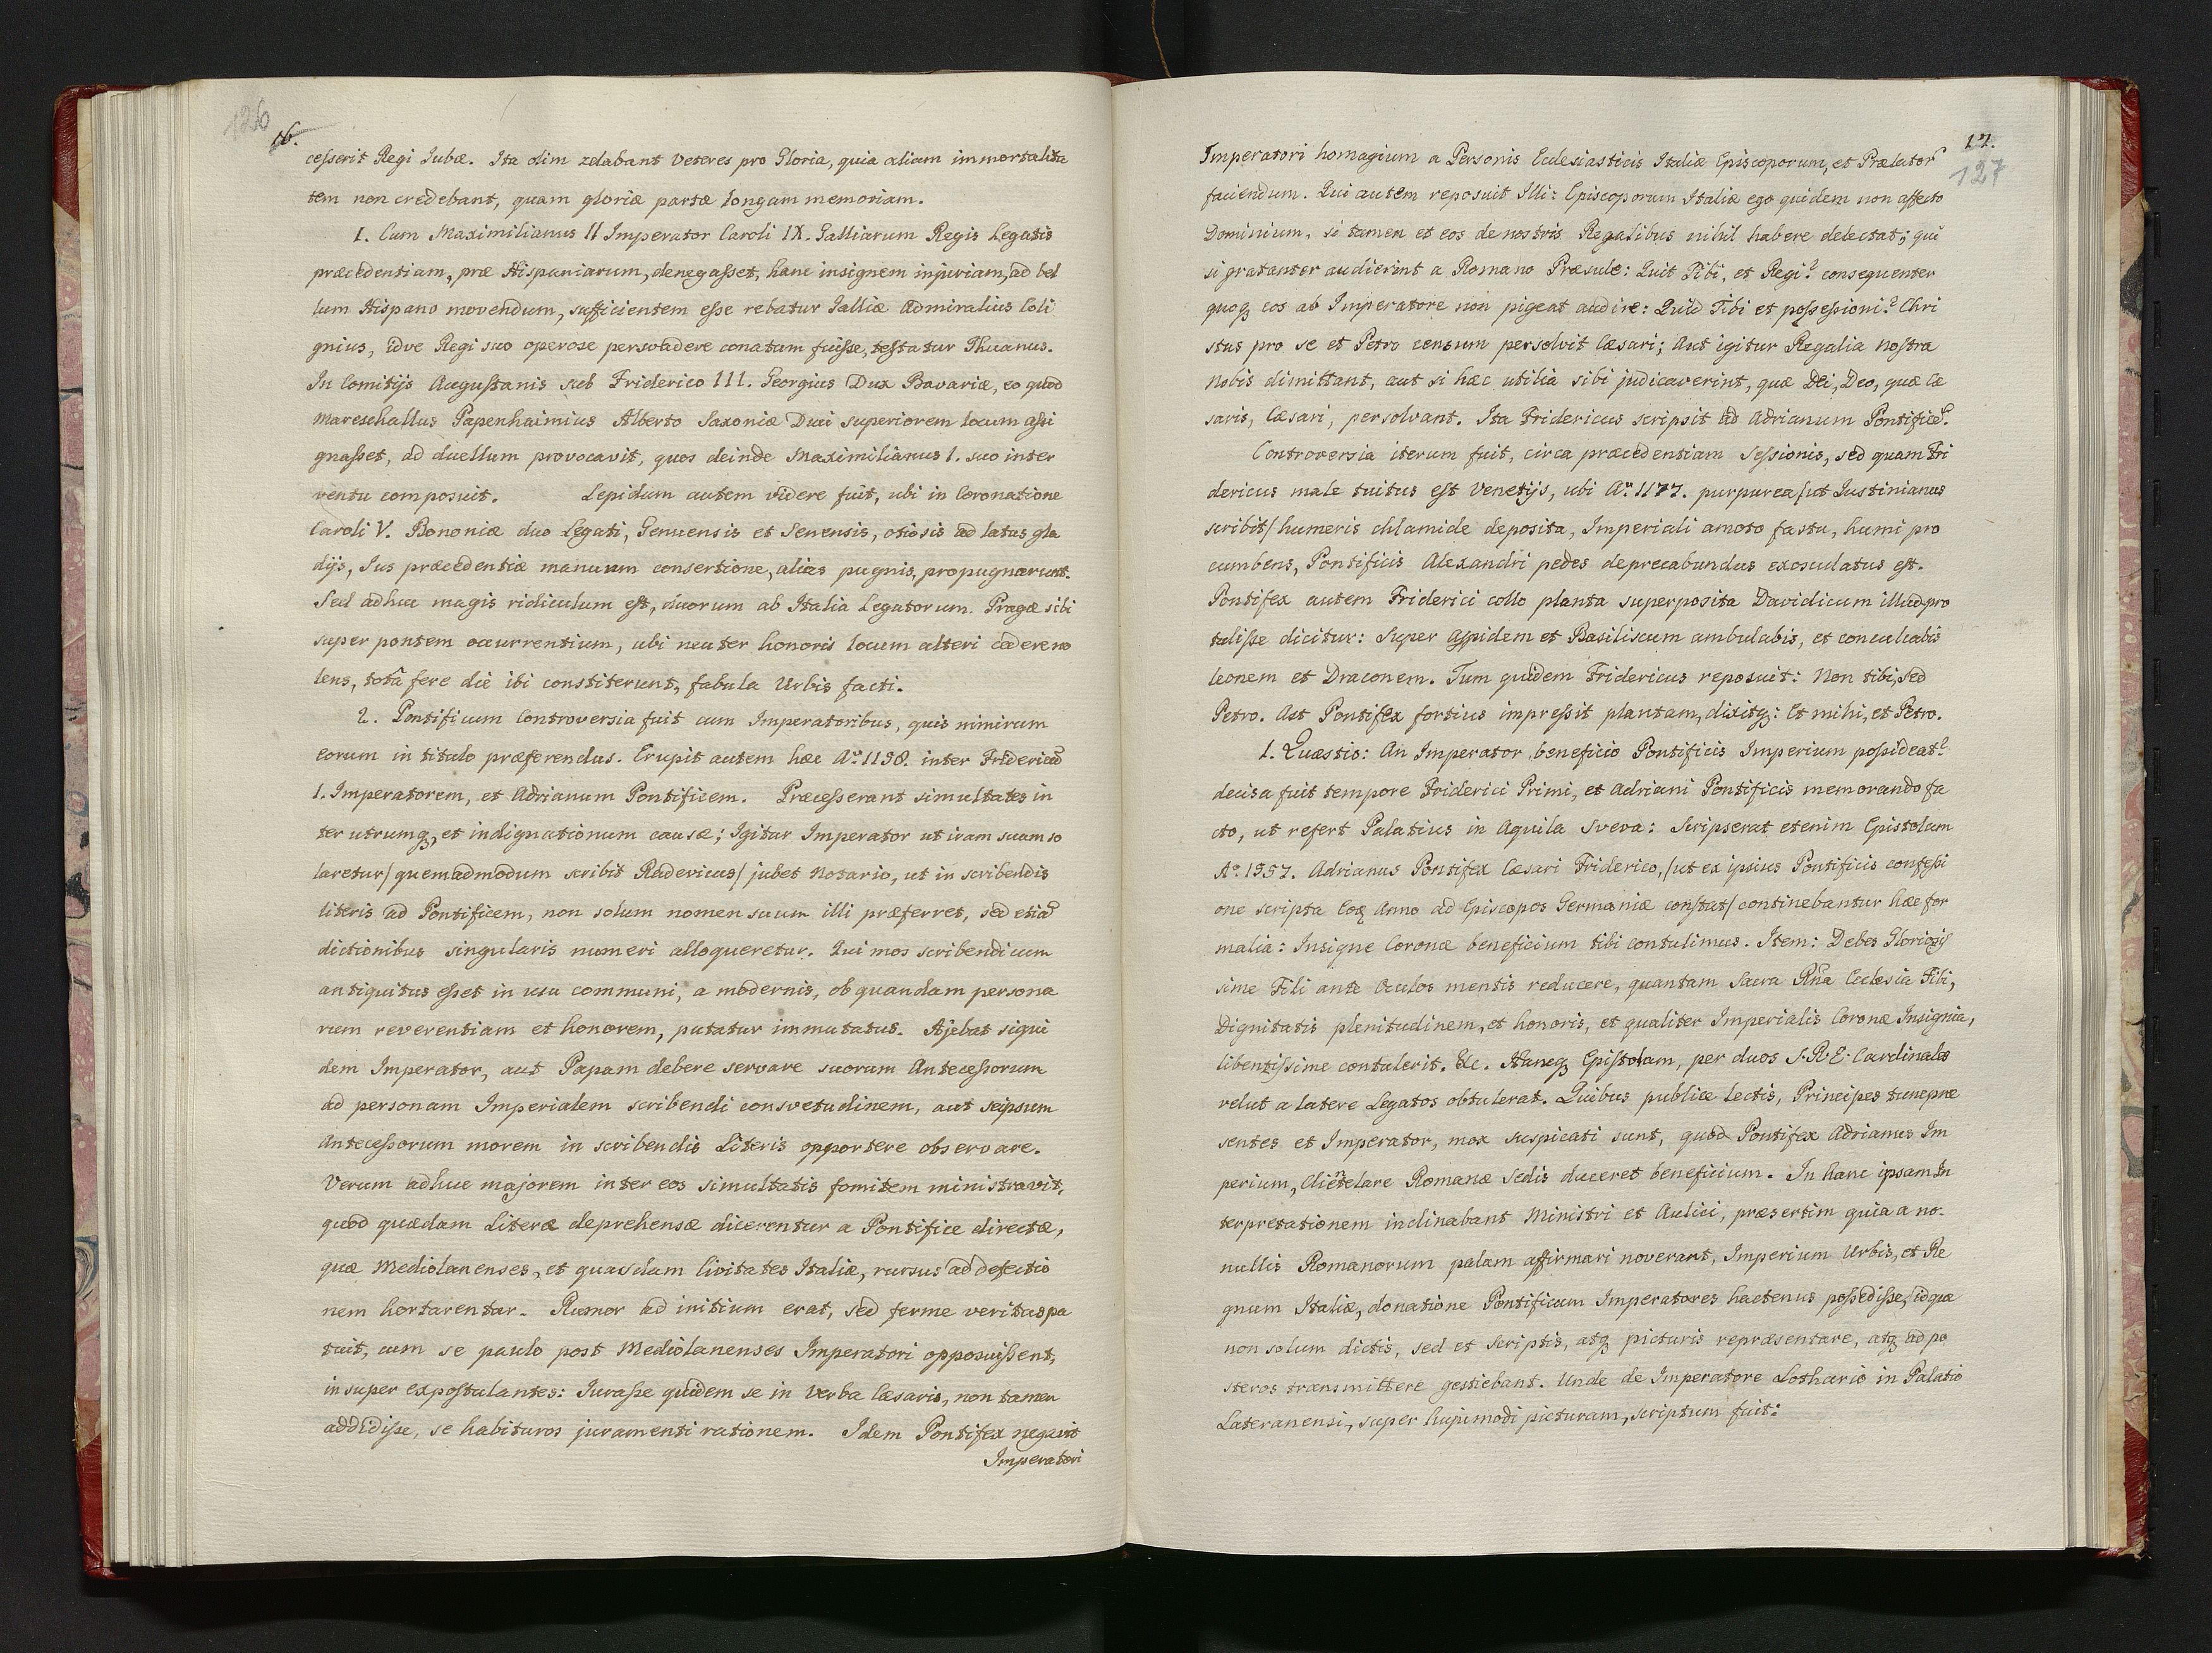 126
16.
cesserit Regi Jubæ. Ita olim zelabant Veteres pro Gloria, quia aliam immortalita
tem non credebant, quam gloriæ partæ longam memoriam.
1. Cum Maximilianus II Imperator Caroli IX. Galliarum Regis Legatis
præcedentiam, præ Hispaniarum, denegasset, hanc insignem injuriam, ad bel
lum Hispano movendum, sufficientem esse rebatur Galliæ Admiralius Coli
gnius, idve Regi suo operose persvadere conatum fuisse, testatur Thuanus.
In Comitijs Augustanis sub Friderico III. Georgius Dux Bavariæ, eo quod
Mareschallus Papenhaimius Alberto Saxoniæ Duci superiorem locum assi
gnasset, ad duellum provocavit, quos deinde Maximilianus 1. suo inter
ventu composuit. Lepidum autem videre fuit, ubi in Coronatione
Caroli V. Bononiæ duo Legati, Genuensis et Senensis, otiosis ad latus gla
dijs, Jus præcedentiæ manuum consertione, alias pugnis, propugnarunt.
Sed adhuc magis ridiculum est, duorum ab Italia Legatorum Pragæ sibi
super pontem occurrentium, ubi neuter honoris locum alteri cedere no
lens, totâ fere die ibi constiterunt, fabula Urbis facti.
2. Pontificum Controversia fuit cum Imperatoribus, quis nimirum
eorum in titulo præferendus. Erupit autem hæc Aᵒ: 1158. inter Fridericū
1. Imperatorem, et Adrianum Pontificem. Præcesserant simultates in
ter utrumq₃, et indignationum causæ; Igitur Imperator ut iram suam so
laretur/ quemadmodum scribit Radericus/ jubet Notario, ut in scribendis
literis ad Pontificem, non solum nomen suum illi præferret, sed etiā
dictionibus singularis numeri alloqueretur. Qui mos scribendi cum
antiquitus esset in usu communi, a modernis, ob quandam persona
rum reverentiam et honorem, putatur immutatus. Ajebat siqui
dem Imperator, aut Papam debere servare suorum Antecessorum
ad personam Imperialem scribendi consvetudinem, aut seipsum
Antecessorum morem in scribendis Literis opportere observare.
Verum adhuc majorem inter eos simultatis fomitem ministravit,
quod quædam Literæ deprehensæ dicerentur a Pontifice directæ,
quæ Mediolanenses, et quasdam Civitates Italiæ, rursus ad defectio
nem hortarentur. Rumor ad initium erat, sed ferme veritas pa
tuit, cum se paulo post Mediolanenses Imperatori opposuissent,
insuper expostulantes: Jurasse quidem se in Verba Cæsaris, non tamen
addidisse, se habituros juramenti rationem. Idem Pontifex negavit
Imperatori
17.
127
Imperatori homagium a Personis Ecclesiasticis Italiæ Episcoporum, et Prælatorū
faciendum. Qui autem reposuit Illi: Episcoporum Italiæ ego quidem non affecto
Dominium, si tamen et eos de nostris Regalibus nihil habere delectat; qui
si gratanter audierint a Romano Præsule: Quit Tibi, et Regi? consequenter
quoq₃ eos ab Imperatore non pigeat audire: Quid Tibi et possessioni? Chri
stus pro se et Petro censum persolvit Cæsari; Aut igitur Regalia nostra
Nobis dimittant, aut si hæc utilia sibi judicaverint, quæ Dei, Deo, quæ Cæ
saris, Cæsari, persolvant. Ita Fridericus scripsit ad Adrianum Pontificē.
Controversia iterum fuit, circa præcedentiam Sessionis, sed quam Fri
dericus male tuitus est Venetijs, ubi Aᵒ: 1177. purpurea/ut Justinianus
scribit/ humeris chlamide deposita, Imperiali amoto fastu, humi pro
cumbens, Pontificis Alexandri pedes deprecabundus exosculatus est.
Pontifex autem Friderici collo planta superposita Davidicum illud pro
tulisse dicitur: Super Aspidem et Basiliscum ambulabis, et conculcabis
leonem et Draconem. Tum quidem Fridericus reposuit: Non tibi, sed
Petro. Ast Pontifex fortius impressit plantam, dixitq₃: Et mihi, et Petro.
1. Quæstio: An Imperator beneficio Pontificis Imperium possideat?
decisa fuit tempore Friderici Primi, et Adriani Pontificis memorando fa
cto, ut refert Palatius in Aquila Sveva: Scripserat etenim Epistolam
Aᵒ: 1557. Adrianus Pontifex Cæsari Friderico, /ut ex ipsius Pontificis confessi
one scripta Eoq₃ Anno ad Episcopos Germaniæ constat/ continebantur hæc for
malia: Insigne Coronæ beneficium tibi contulimus. Item: Debes Gloriosis
sime Fili ante Oculos mentis reducere, quantam Sacra Rña Ecclesia Tibi,
Dignitatis plenitudinem, et honoris, et qualiter Imperialis Coronæ Insignia,
libentissime contulerit. &c. Hancq₃ Epistolam, per duos S. R. E. Cardinales
velut a latere Legatos obtulerat. Quibus publice lectis, Principes tunc præ
sentes et Imperator, mox suspicati sunt, quod Pontifex Adrianus Im
perium, Clientelare Romanæ Sedis duceret beneficium. In hanc ipsam In
terpretationem inclinabant Ministri et Aulici, præsertim quia a no-
nullis Romanorum palam affirmari noverant, Imperium Urbis, et Re
gnum Italiæ, donatione Pontificum Imperatores hactenus possedisse, idque
non solum dictis, sed et scriptis, atq₃ picturis repræsentare, atq₃ ad po
steros transmittere gestiebant. Unde de Imperatore Lothario in Palatio
Lateranensi, super hujusmodi picturam, scriptum fuit: